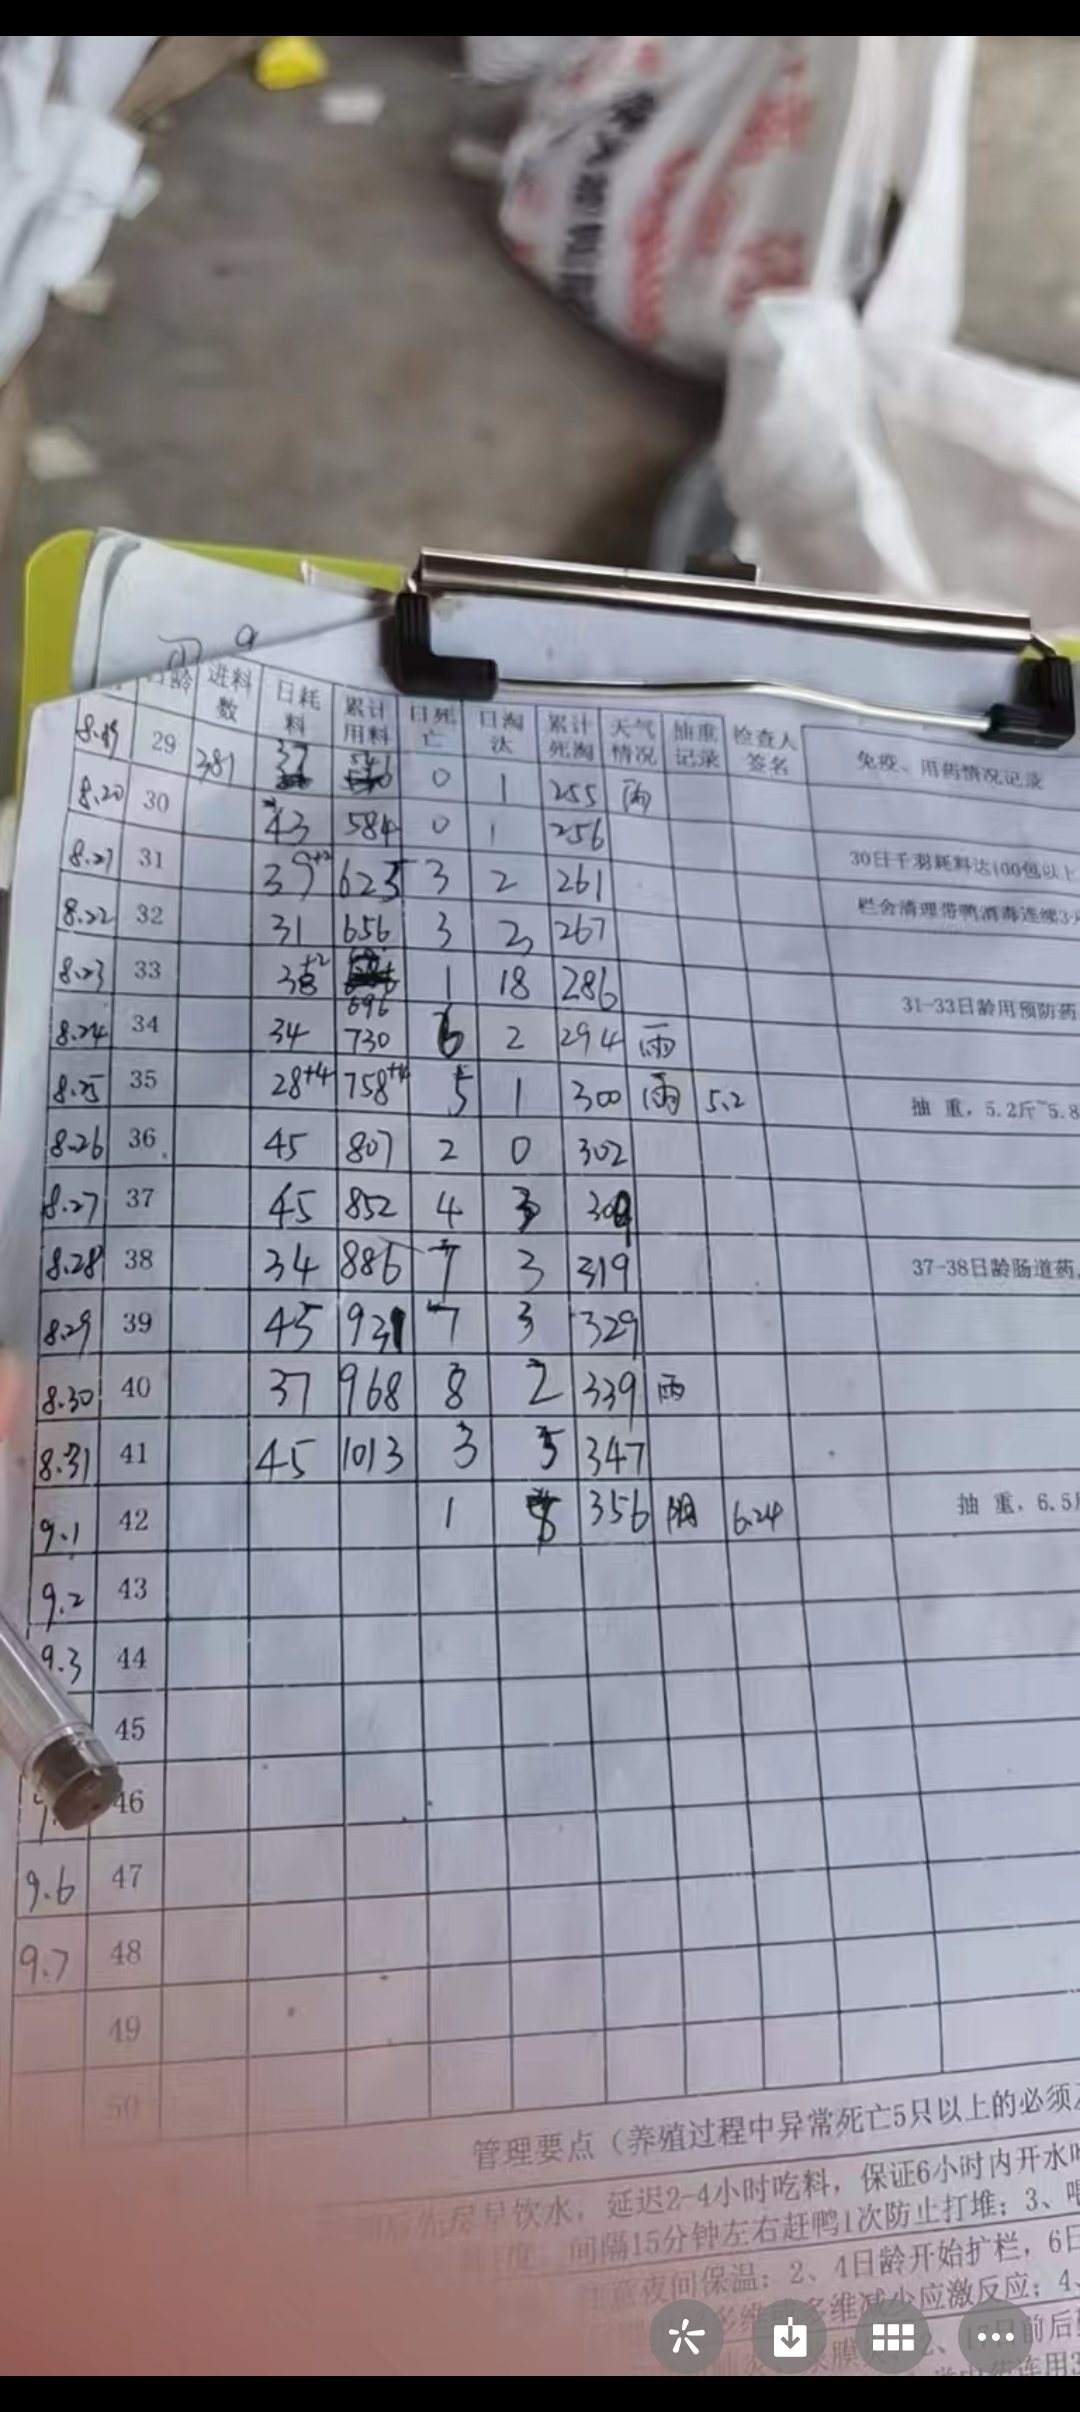 日龄 进料数 日耗料 累计用料 日死亡 日淘汰 累计死淘 天气情况 抽重记录 检查人签名 免疫、用药情况记录
8.19 29 381 37 541 0 1 255 雨
8.20 30 43 584 0 1 256
8.21 31 39+2 625 3 2 261 30日千羽耗料达100包以上
8.22 32 31 656 3 2 267 栏舍清理带鸭消毒连续3
8.23 33 38+2 696 1 18 286 31-33日龄用预防药
8.24 34 34 730 6 2 294 雨
8.25 35 28+4 758+4 5 1 300 雨 5.2 抽 重，5.2斤~5.8
8.26 36 45 807 2 0 302
8.27 37 45 852 4 3 309
8.28 38 34 886 7 3 319 37-38日龄肠道药
8.29 39 45 931 7 3 329
8.30 40 37 968 8 2 339 雨
8.31 41 45 1013 3 5 347
9.1 42 1 8 356 阴 6.24 抽 重，6.5斤
9.2 43
9.3 44
45
46
9.6 47
9.7 48
49
50
管理要点（养殖过程中异常死亡5只以上的必须
尽早饮水，延迟2-4小时吃料，保证6小时内开水
间隔15分钟左右赶鸭1次防止打堆；3、
注意夜间保温；2、4日龄开始扩栏，6日
多维减少应激反应；4、